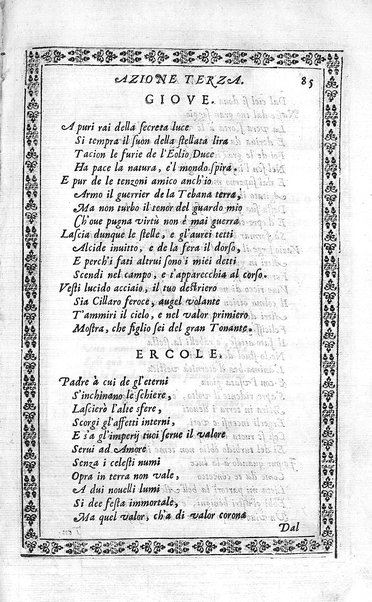 AZIONE TERZA. 85
GIOVE.
A puri rai della secreta luce
Si tempra il suon della stellata lira
Tacion le furie de l'Eolio Duce
Ha pace la natura, e'l mondo spira.
E pur de le tenzoni amico anch'io
Armo il guerrier de la Tebana terra,
Ma non turbo il tenor del guardo mio
Ch'oue pugna virtù non è mai guerra
Lascia dunque le stelle, e gl'aurei tetti
Alcide inuitto, e de la fera il dorso,
E perch'i fati altrui sono i miei detti
Scendi nel campo, e t'apparecchia al corso.
Vesti lucido acciaio, il tuo destriero
Sia Cillaro feroce, augel volante
T'ammiri il cielo, e nel valor primiero
Mostra, che figlio sei del gran Tonante.
ERCOLE.
Padre à cui de gl'eterni
S'inchinano le schiere,
Lascierò l'alte sfere,
Scorgi gl'affetti interni,
E s'a gl'imperij tuoi serue il valore
Serui ad Amore
Senza i celesti numi
Opra in terra non vale,
A dui nouelli lumi
Si dee festa immortale,
Ma quel valor, ch'a di valor corona
Dal